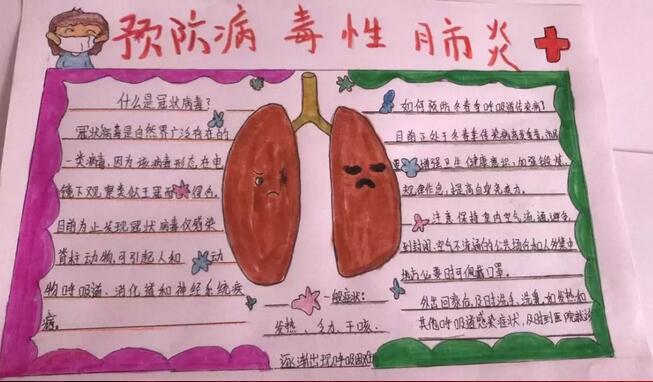 预防病毒性肺炎
什么是冠状病毒?
冠状病毒是自然界广泛存在的
一类病毒,因为该病毒形态在电
镜下观察类似王冠而得名。
目前为止发现冠状病毒仅感染
脊椎动物,可引起人和动
物呼吸道、消化道和神经系统疾
病。
一般症状:
发热、乏力、干咳、
逐渐出现呼吸困难
如何预防冬春季呼吸道传染病?
目前正处于冬春季传染病
增强卫生健康意识,加强锻炼,
规律作息,提高自身免疫力。
注意保持室内空气流通,避免
到封闭、空气不流通的公共场合和人多集中
地方,必要时可佩戴口罩。
外出回来后,及时洗手、洗鼻,如发热和
其他呼吸道感染症状,及时到医院就诊